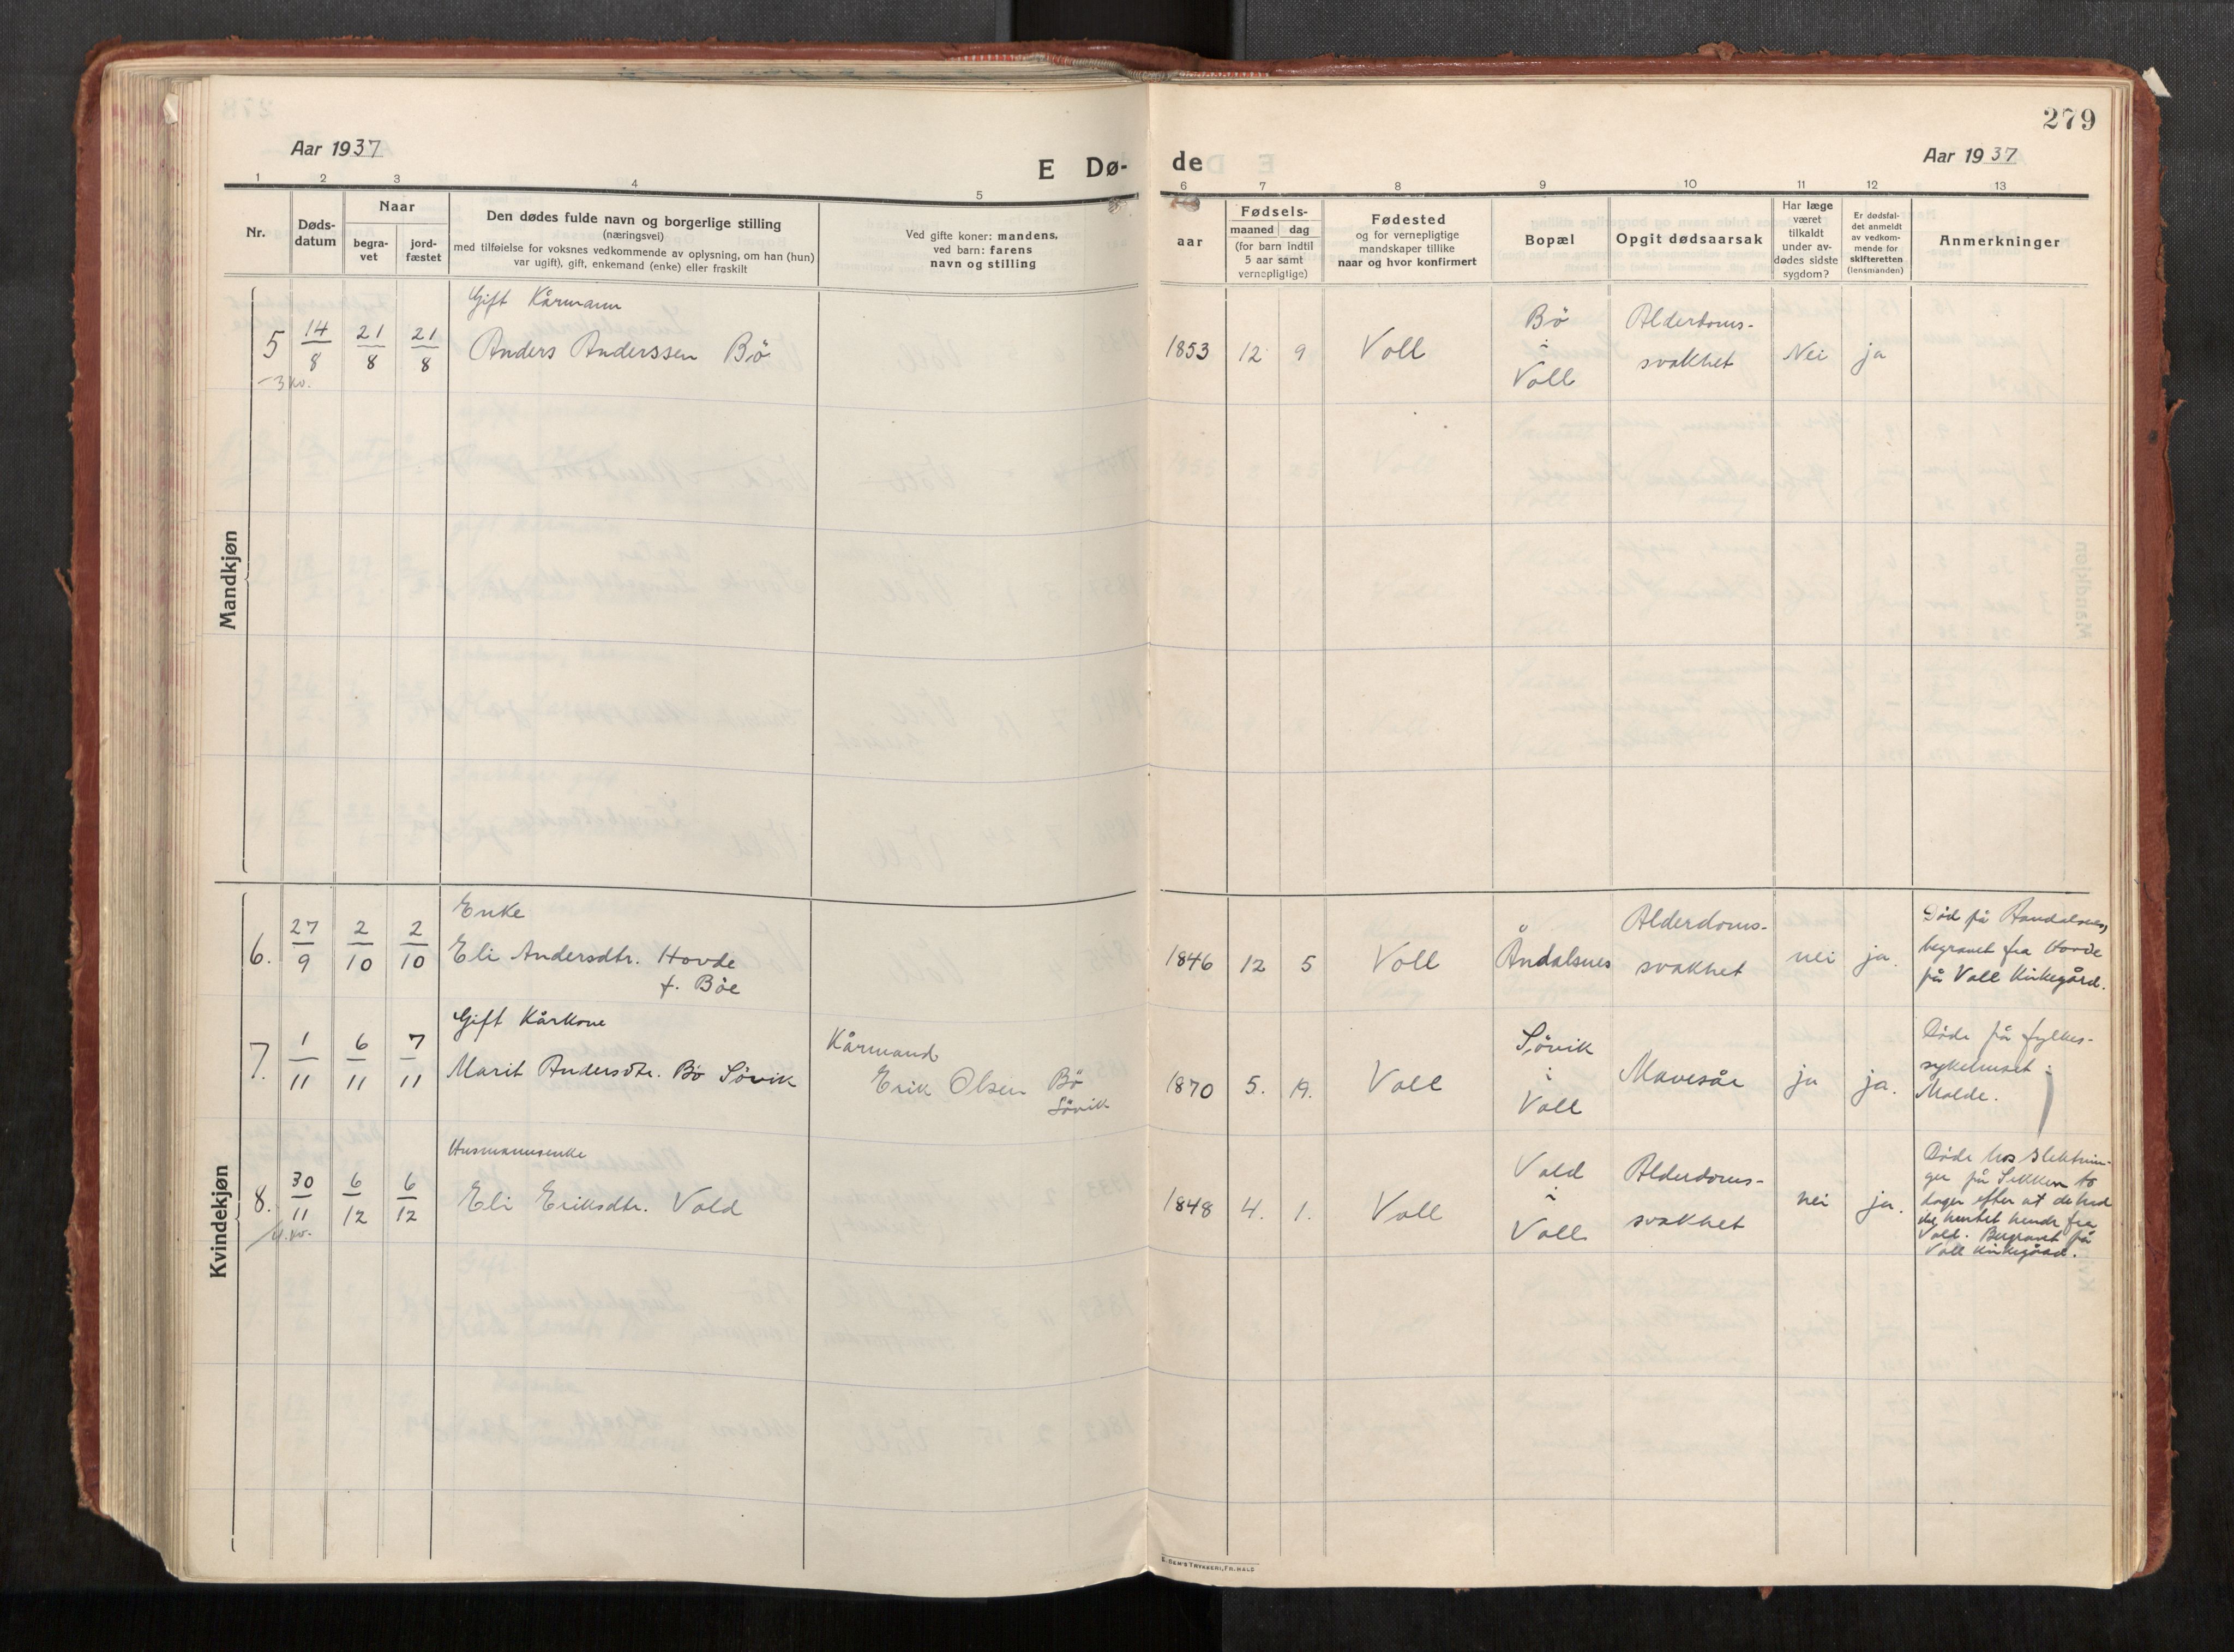 279
Aar 1937
E Dø-
de
Aar 1937
1 2 3 4 5 6 7 8 9 10 11 12 13
Nr.
Døds-
datum
Naar
begra-
vet
jord-
fæstet
Den dødes fulde navn og borgerlige stilling
(næringsvei)
med tilføielse for voksnes vedkommende av oplysning, om han (hun)
var ugift), gift, enkemand (enke) eller fraskilt
Ved gifte koner: mandens,
ved barn: farens
navn og stilling
Fødsels-
aar
maaned
dag
(for barn indtil
5 aar samt
vernepligtige)
Fødested
og for vernepligtige
mandskaper tillike
naar og hvor konfirmert
Bopæl
Opgit dødsaarsak
Har læge
været
tilkaldt
under av-
dødes sidste
sygdom?
Er dødsfal-
det anmeldt
av vedkom-
mende for
skifteretten
(lensmanden)
Anmerkninger
Mandkjøn
Gift Kårmann
5 14/8 21/8 21/8 Anders Anderssen Bö 1853 12 9 Voll Bö i Voll Alderdoms-
svakhet Nei ja
3 kv.
Kvindekjøn
Enke
6. 27/9 2/10 2/10 Eli Andersdtr. Hovde
f. Böe
1846 12 5 Voll Åndalsnes Alderdoms-
svakhet nei ja.
Död på Aandalsnes,
begravet fra Hovde
på Voll Kirkegård.
Gift Kårkone
7. 1/11 6/11 7/11 Marit Andersdtr. Bö Sövik
Kårmand
Erik Olsen Bö
Sövik
1870 5. 19. Voll Sövik i Voll Mavesår ja ja.
Döde på fylkes-
sykehuset i
Molde.
Husmannsenke
8. 30/11 6/12 6/12 Eli Eriksdtr. Vold
4. kv.
1848 4. 1. Voll Vold i Voll Alderdoms-
svakhet nei ja.
Döde hos slektnin-
ger på Sekken to
dager efter at de had
de hentet hende fra
Vold. Begravet på
Voll Kirkegård.